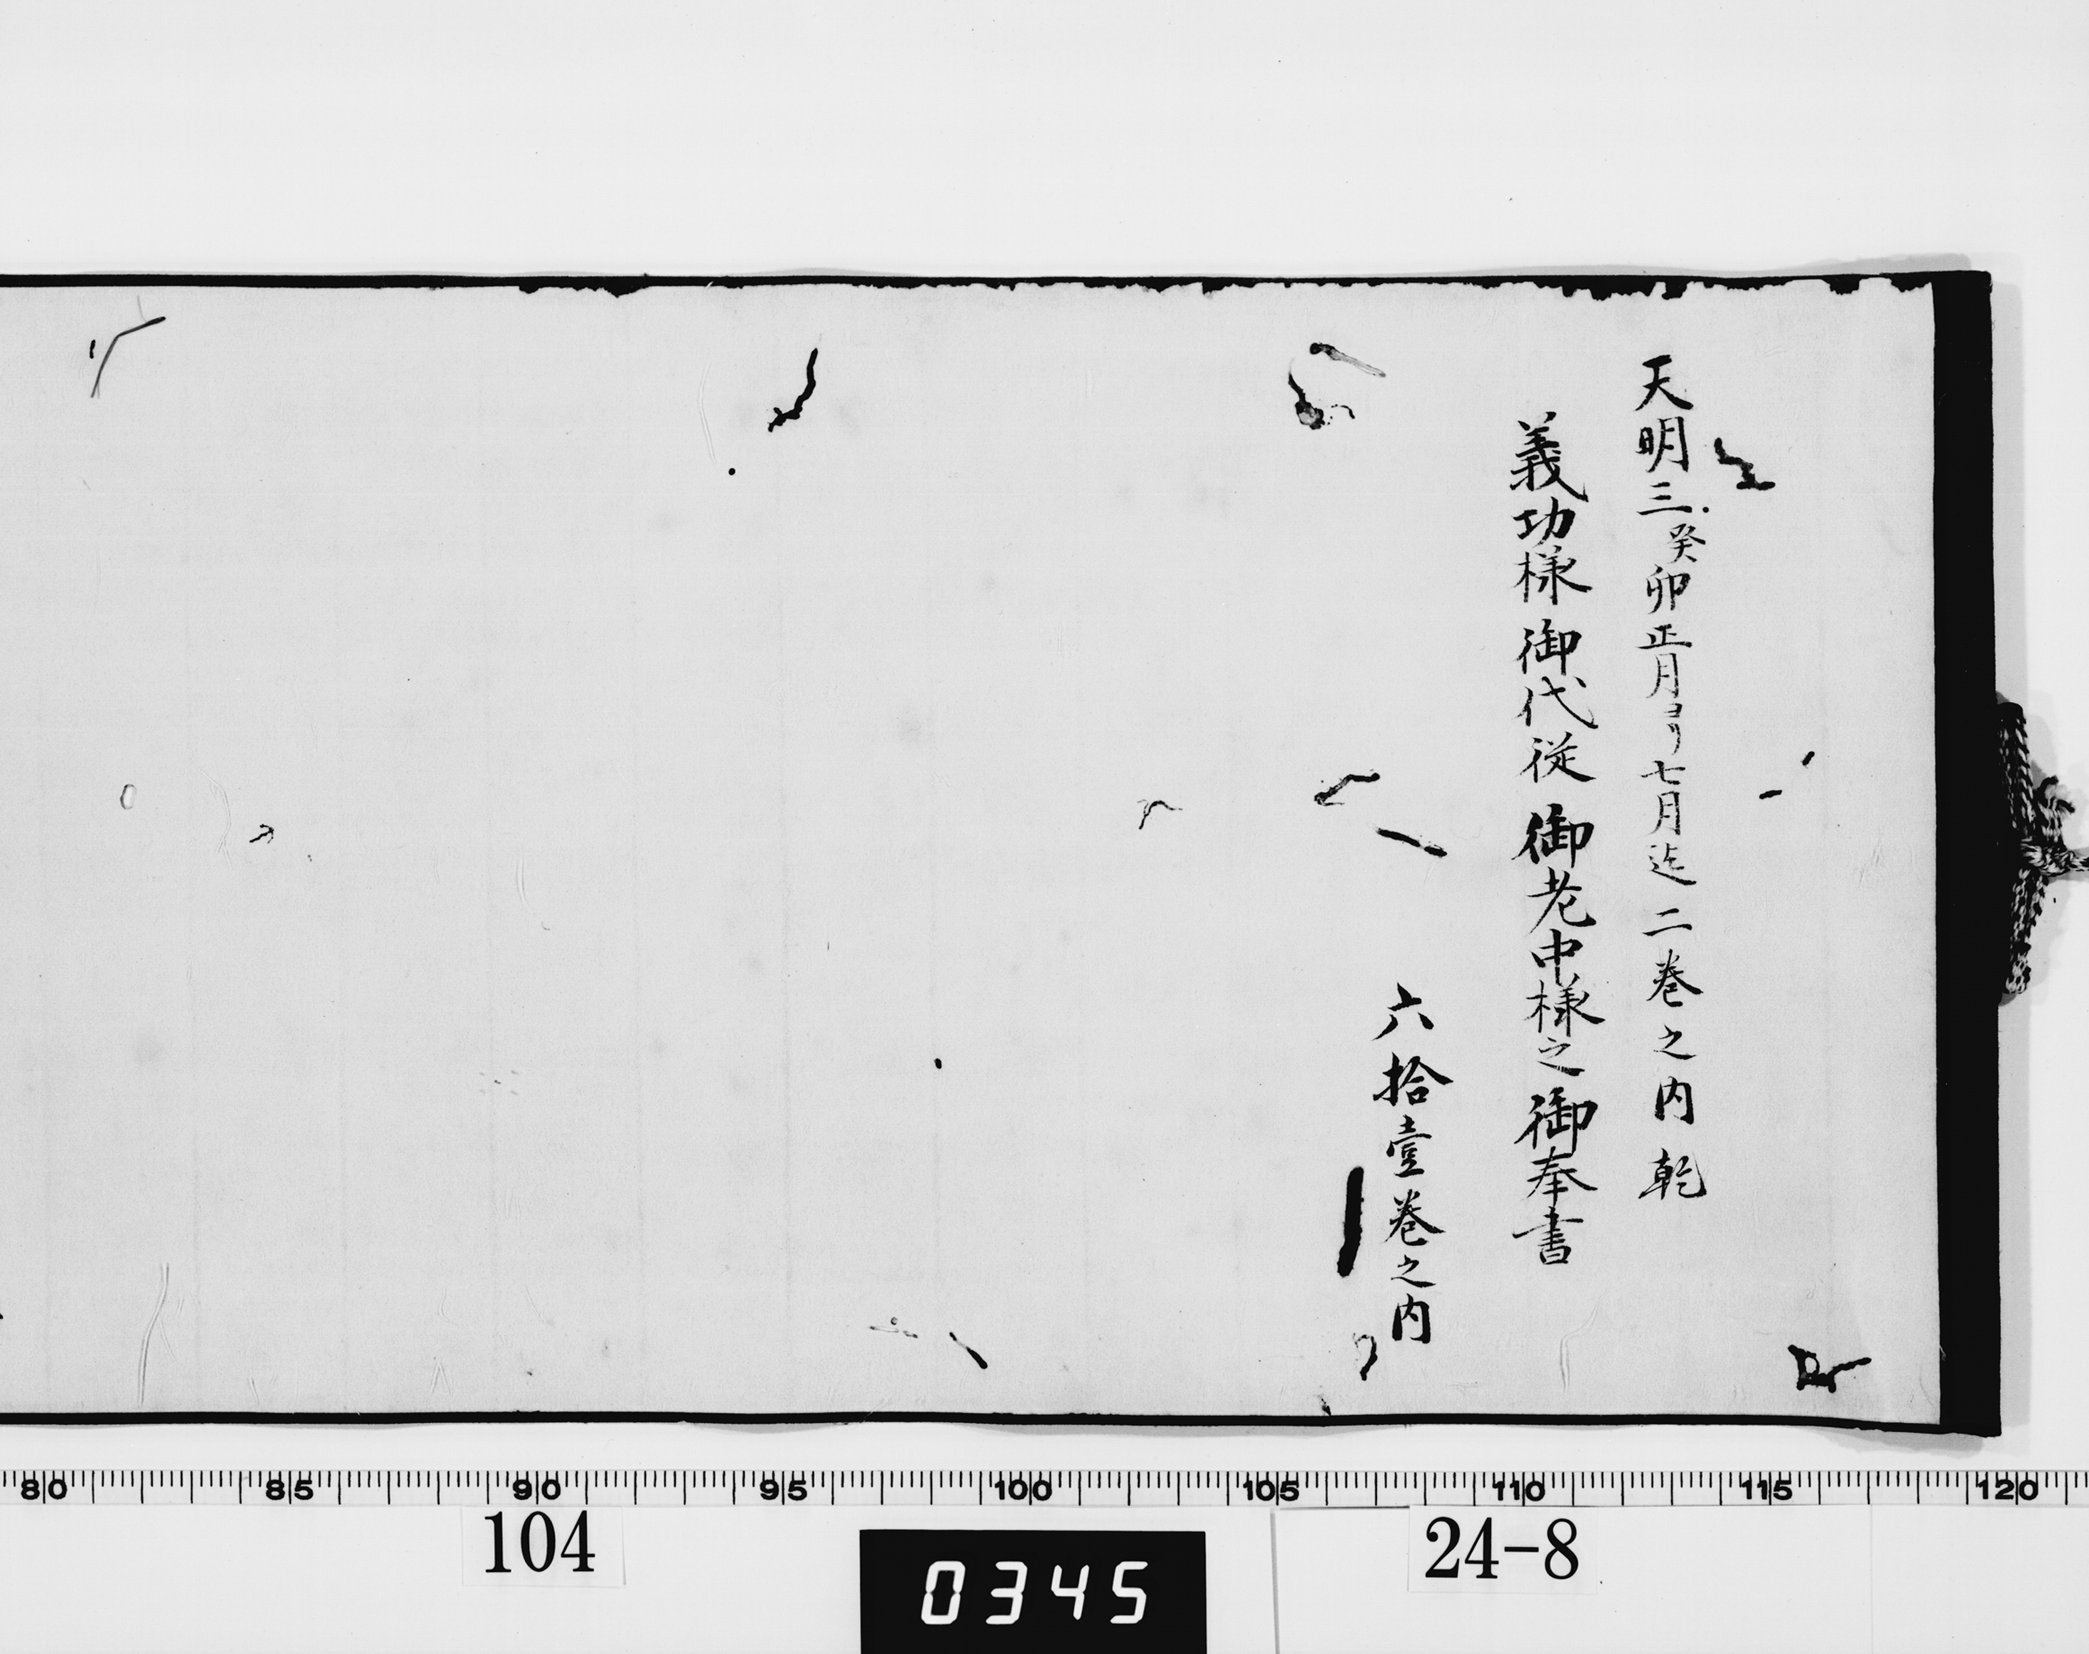 天明三癸卯正月ヨリ七月迄二巻之内乾
義功様御代従御老中様之御奉書
六拾壹巻之内
80 85 90 95 100 105 110 115 120
104
0345
24-8